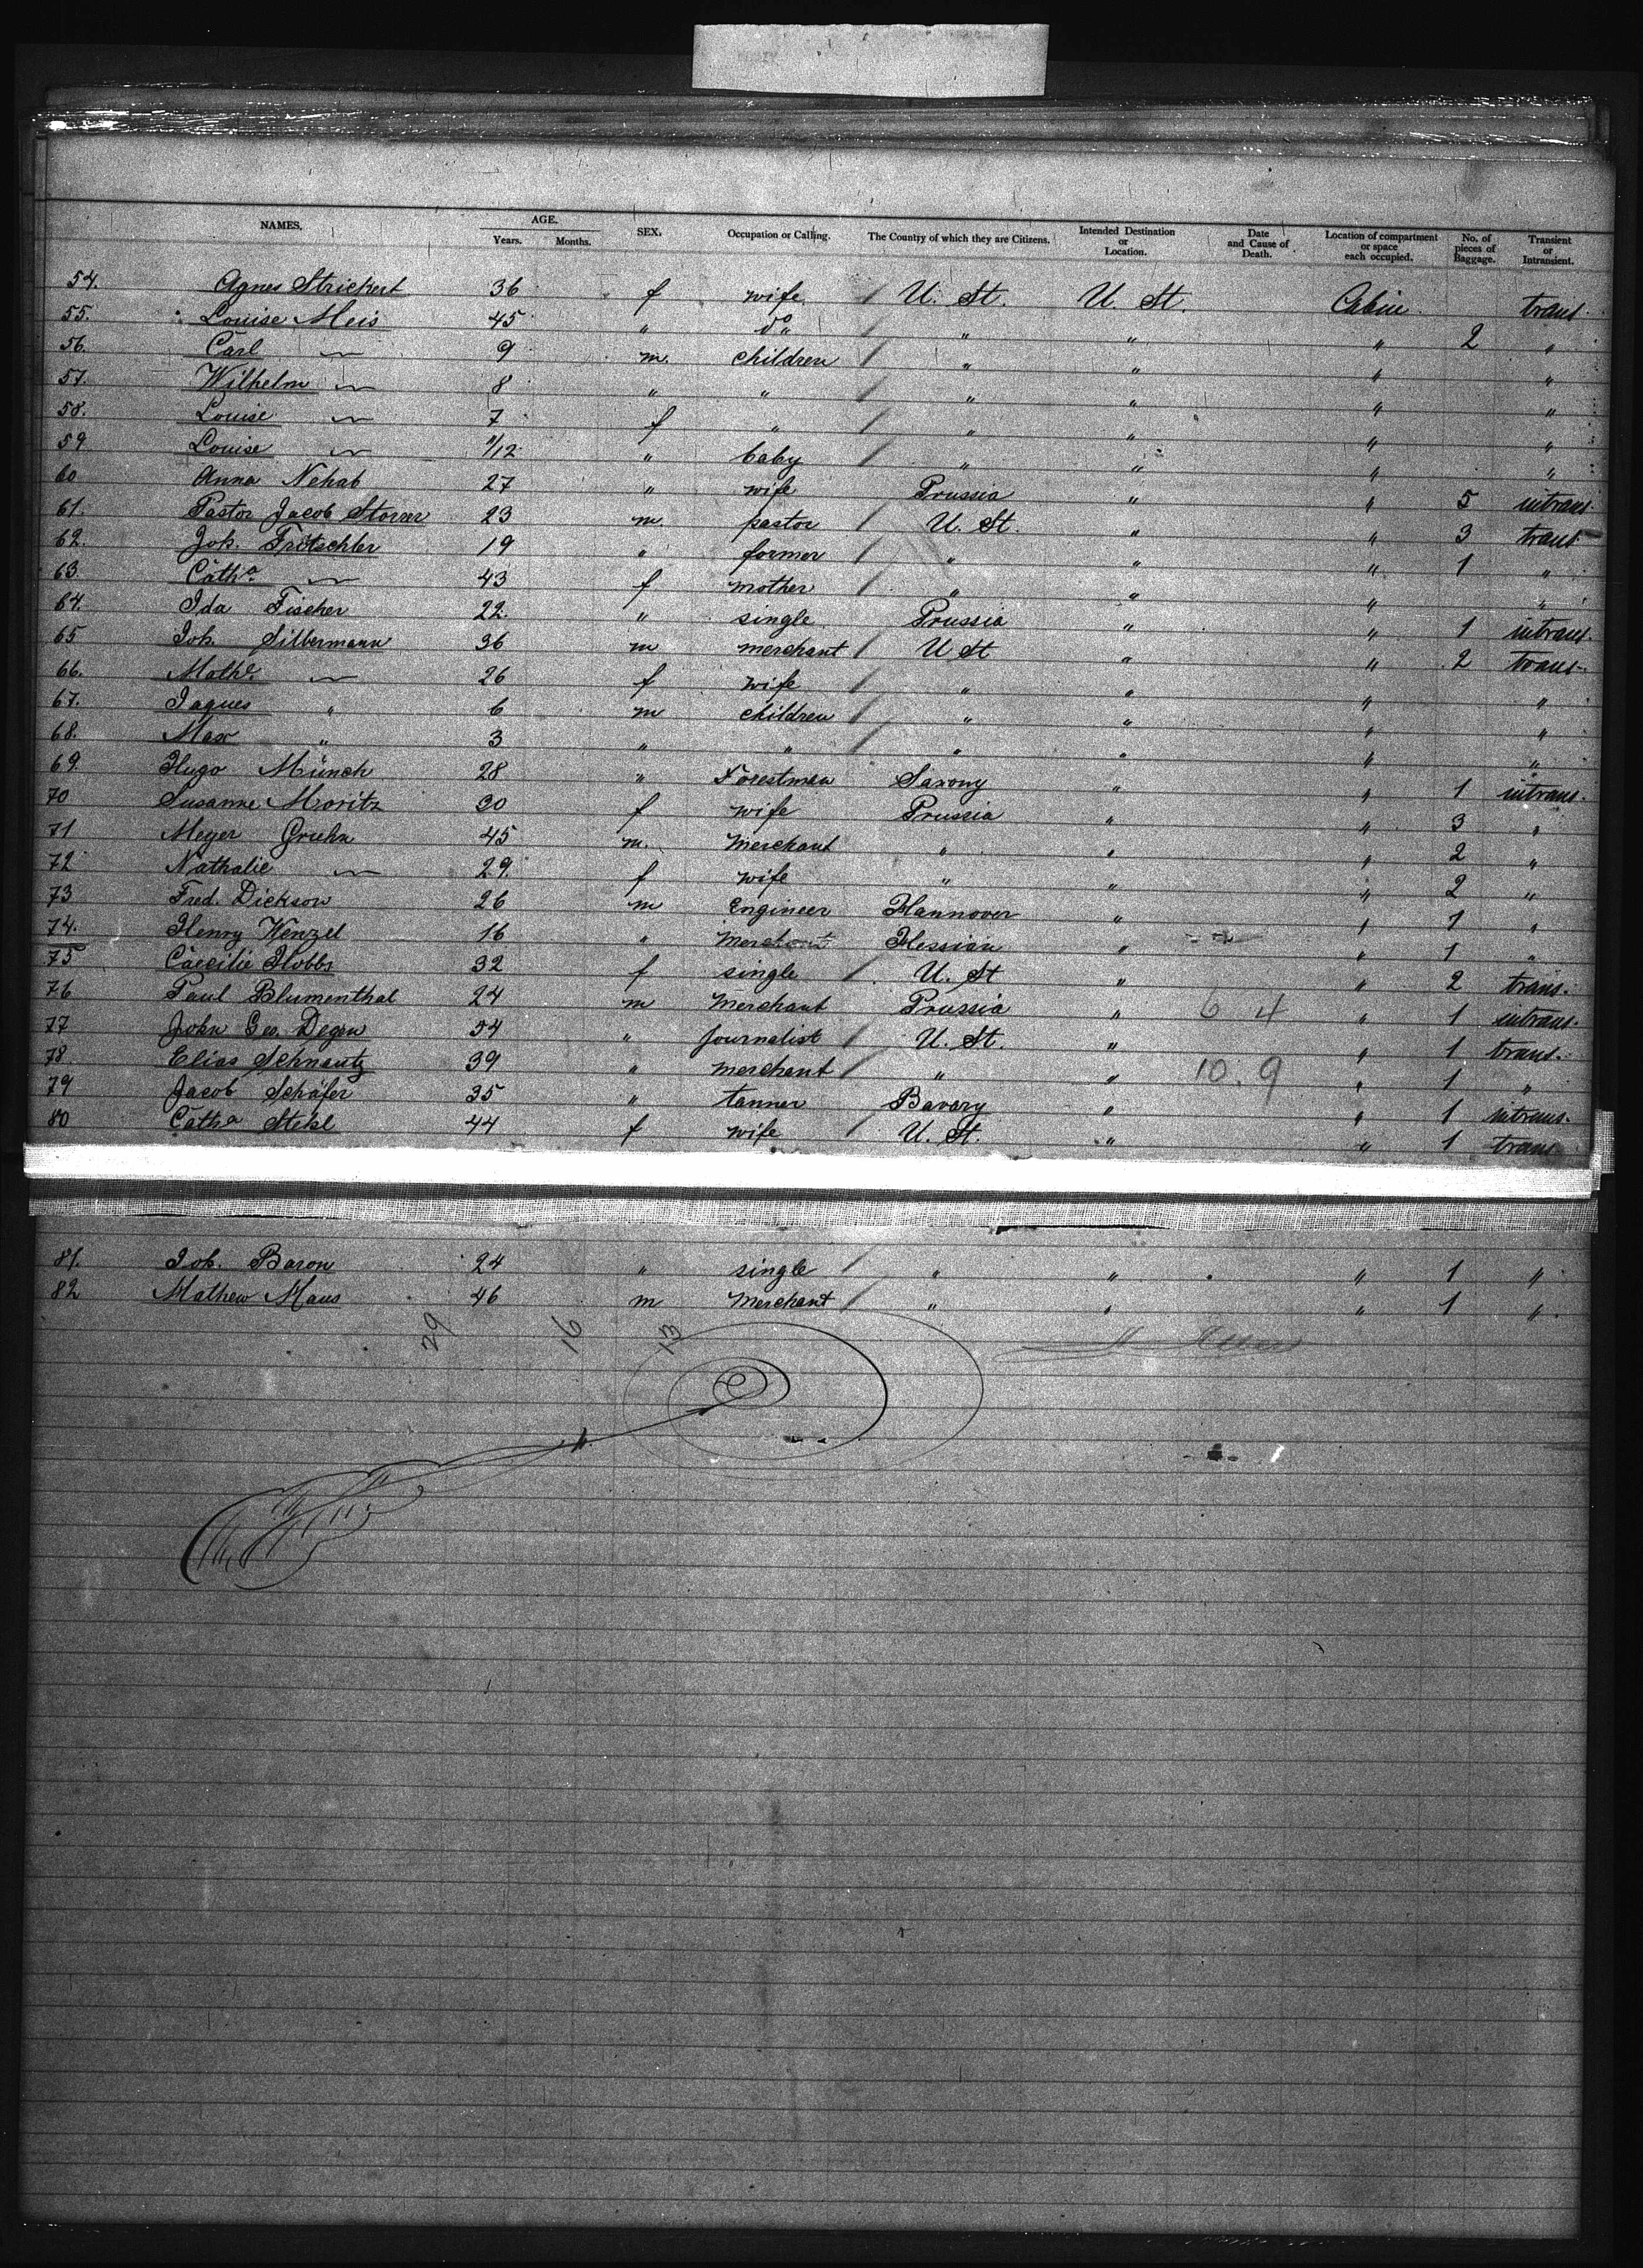 NAMES. AGE. Years. Months. SEX. Occupation or Calling. The Country of which they are Citizens. Intended Destination or Location. Date and Cause of Death. Location of compartment or space each occupied. No. of pieces of Baggage. Transient or Intransient.
54. Agnes Strickert 36 f wife U. St. U. St. Cabin trans.
55. Louise Meis 45 " do " " " 2 "
56. Carl 9 m. children " " " "
57. Wilhelm 8 " " " " " "
58. Louise 7 f " " " " "
59. Louise 11/12 " baby " " " "
60 Anna Nehab 27 " wife Prussia " " 5 intrans.
61. Pastor Jacob Storrer 23 m. pastor U. St. " " 3 trans
62. Joh. Frötschler 19 " former " " " 1 "
63. Catha. 43 f mother " " " "
64. Ida Fischer 22. " single Prussia " " 1 intrans.
65 Joh. Silbermann 36 m merchant U St " " 2 trans.
66. Mathe. 26 f wife " " " "
67. Jaques " 6 m children " " " "
68. Max " 3 " " " " " "
69. Hugo Münch 28 " Forestman Saxony " " 1 intrans.
70 Susanne Moritz 30 f wife Prussia " " 3 "
71 Meyer Gruhn 45 m. Merchant " " " 2 "
72 Nathalie 29. f wife " " " 2 "
73 Fred. Dickson 26 m Engineer Hannover " " 1 "
74. Henry Wenzel 16 " Merchant Hessian " " 1 "
75 Caecilie Hobbs 32 f single U. St " " 2 trans.
76 Paul Blumenthal 24 m Merchant Prussia " 6 4 " 1 intrans.
77 John Geo. Degen 54 " Journalist U. St. " " 1 trans.
78 Elias Schnautz 39 " merchant " " 10. 9 " 1 "
79 Jacob Schäfer 35 " tanner Bavary " " 1 intrans.
80 Catha Stehl 44 f wife U. St. " " 1 trans
81. Joh. Baron 24 " single " " " 1 "
82 Mathew Maus 46 m Merchant " " " 1 "
29 16 13